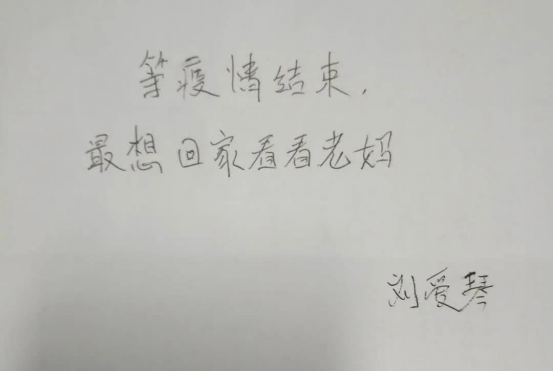 等疫情结束，
最想回家看看老妈
刘爱琴